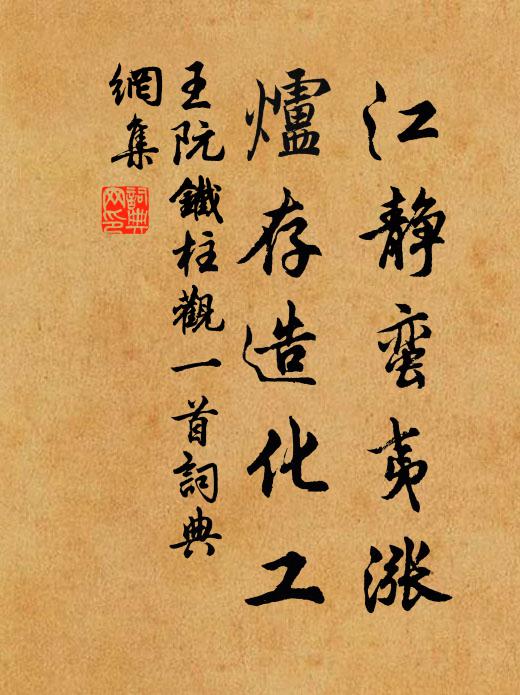 江静蛮夷漲
爐存造化工
王阮鐵柱觀一首詞典
網集
詞典網印